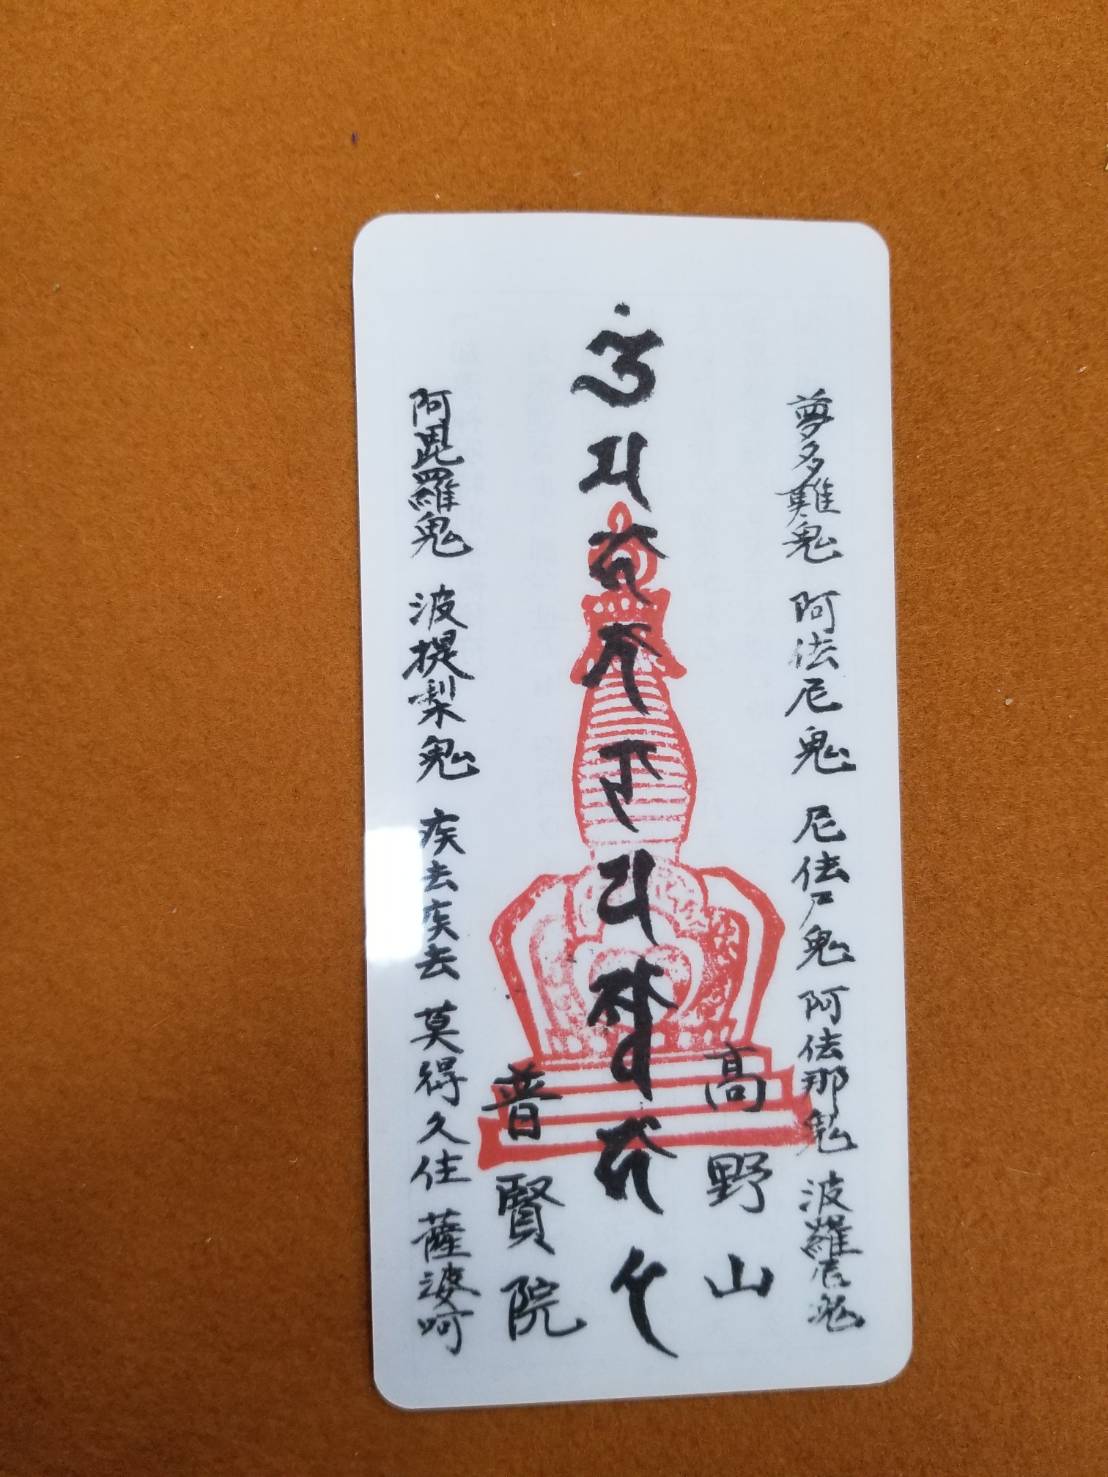 夢多難鬼 阿佉尼鬼 尼佉尸鬼 阿佉那鬼 波羅尼鬼
高野山
普賢院
阿毘羅鬼 波提梨鬼 疾去疾去 莫得久住 薩婆呵